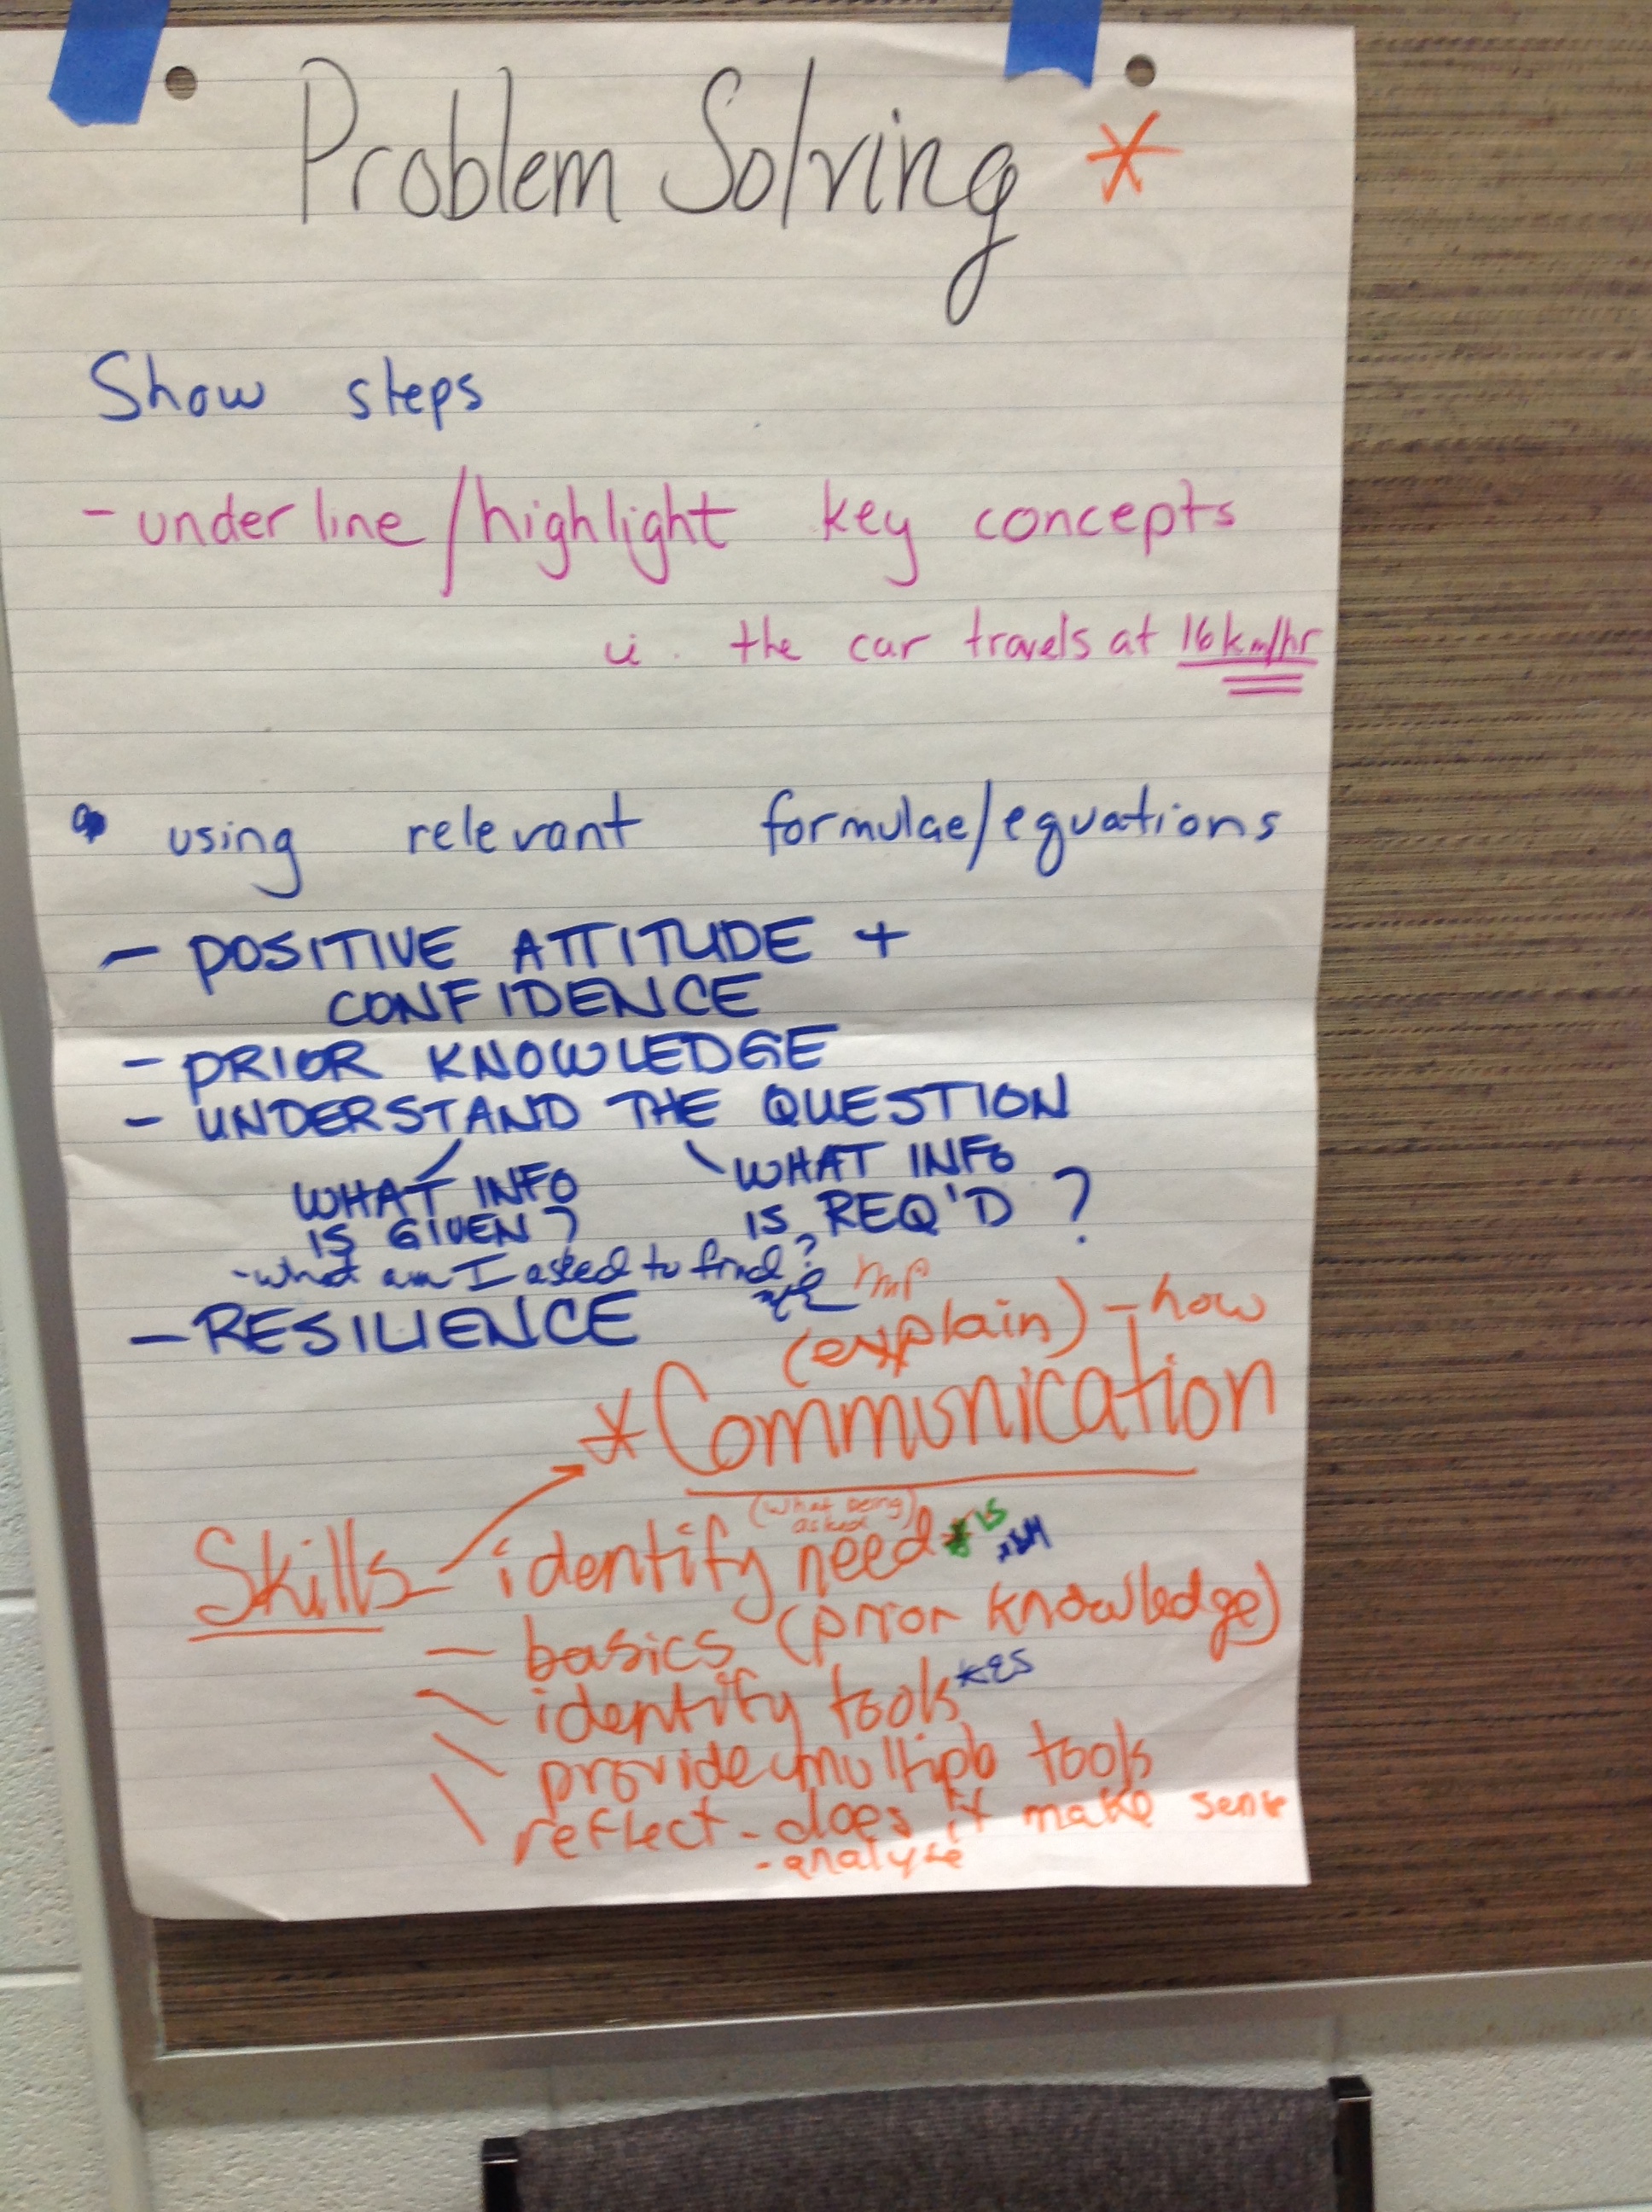 Problem Solving *
Show steps
- underline/highlight key concepts
the car travels at 16km/hr
• using relevant formulae/equations
- POSITIVE ATTITUDE +
CONFIDENCE
- PRIOR KNOWLEDGE
- UNDERSTAND THE QUESTION
WHAT INFO
IS GIVEN?
WHAT INFO
IS REQ'D ?
- what am I asked to find?
- RESILIENCE
(explain) - how
* Communication
(what being
asked)
Skills - identify need
- basics (prior knowledge)
- identify tools
- provide multiple tools
- reflect - does it make sense
- analyze